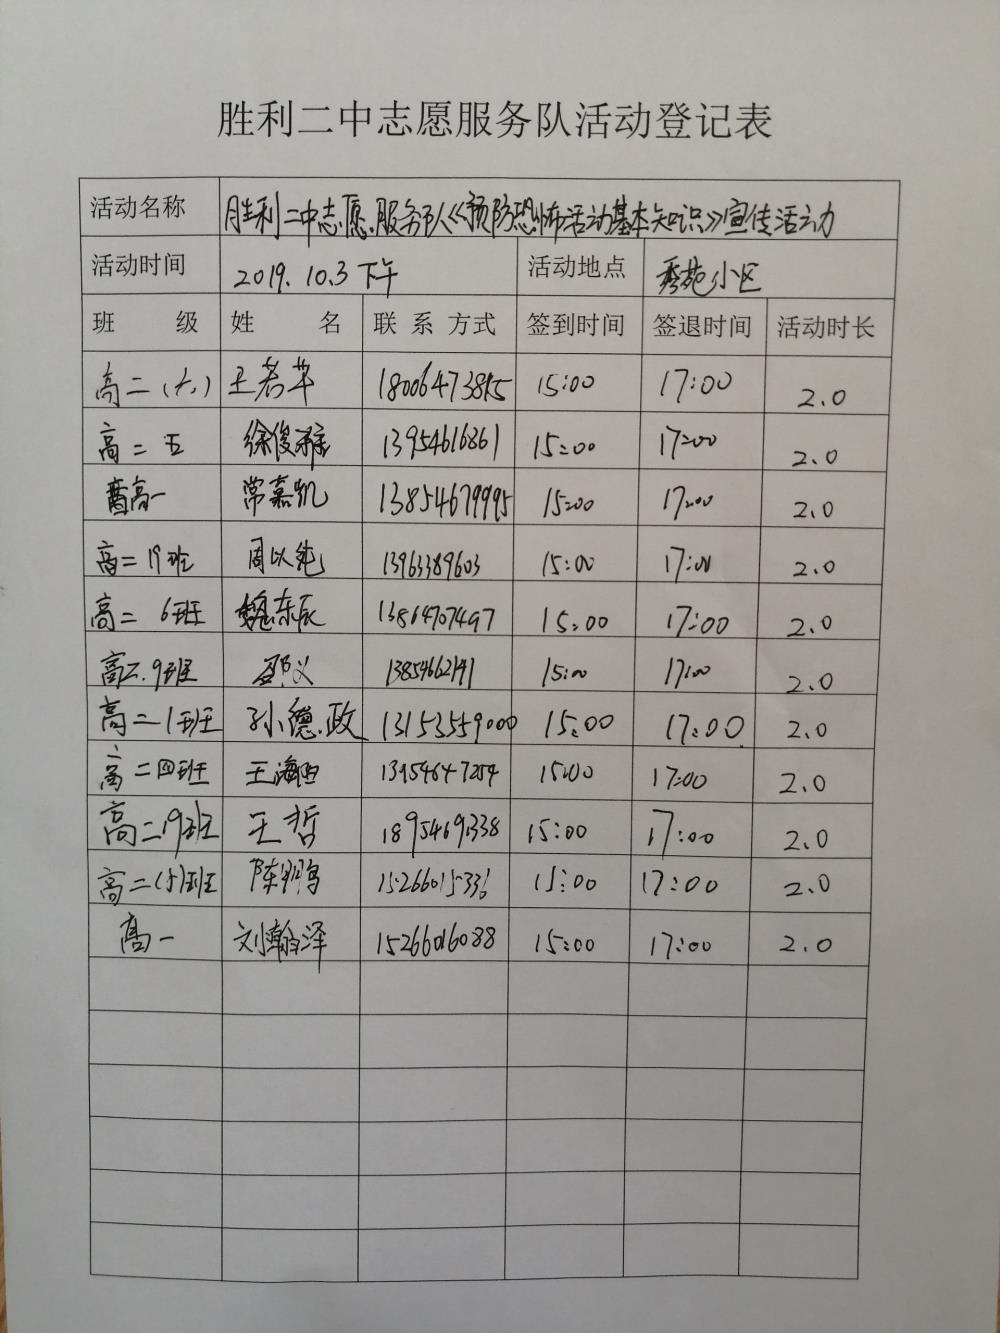 胜利二中志愿服务队活动登记表
活动名称 胜利二中志愿服务队《预防恐怖活动基本知识》宣传活动
活动时间 2019.10.3下午 活动地点 秀苑小区
班 级 姓 名 联 系 方式 签到时间 签退时间 活动时长
高二(六) 王若华 15:00 17:00 2.0
高二五 徐俊 13954616861 15:00 17:00 2.0
高一 常嘉凯 13854679995 15:00 17:00 2.0
高二19班 周以纯 13963389603 15:00 17:00 2.0
高二 6班 魏东辰 13864707497 15:00 17:00 2.0
高二.9班 邵义 13854662141 15:00 17:00 2.0
高二1班 孙德政 13153559000 15:00 17:00 2.0
高二四班 王海 13954647254 15:00 17:00 2.0
高二19班 王哲 15:00 17:00 2.0
高二(5)班 陈鹏 15266015336 15:00 17:00 2.0
高一 刘瀚泽 15266016088 15:00 17:00 2.0